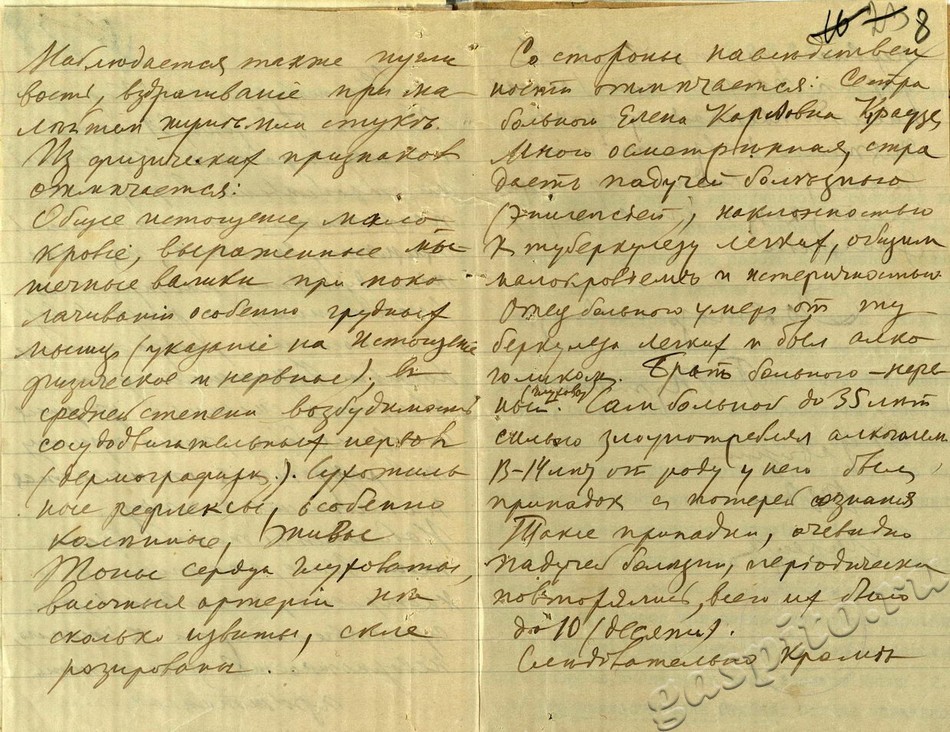 16 23 8
Наблюдается также пугли
вость, вздрагиваніе при ма
лѣйшем шумѣ или стукѣ.
Из физических признаков
отмѣчается:
Общее истощение, мало
кровіе, выраженные мы
шечные валики при поко
лачиваніи особенно грудных
мышц (указаніе на истощение
физическое и нервное), въ
средней степени возбудимость
сосудодвигательных нервов
(дермографизм). Сухожиль
ные рефлексы, особенно
коленные, живые
Тоны сердца глуховатые,
височныя артеріи нѣ
сколько извиты, скле
розированы.
Со стороны наследствен
ности отмѣчается: Сестра
больного Елена Карловна Краузе,
много осмотринная, стра
дает падучей болѣзнью
(эпилепсіей), наклонностью
к туберкулезу легких, общим
малокровіемъ и истеричностью
Отец больного умер от ту
беркулеза легких и был алко
голиком. Брат больного – нерв
ный. Сам больной до 35 лѣт
сильно злоупотреблял алкоголем,
13–14 лѣт от роду у него был
припадок с потерей сознания
Такие припадки, очевидно
падучей болезни, періодически
повторялись, всего их было
до 10 (десяти).
Следовательно кромѣ
gaspito.ru